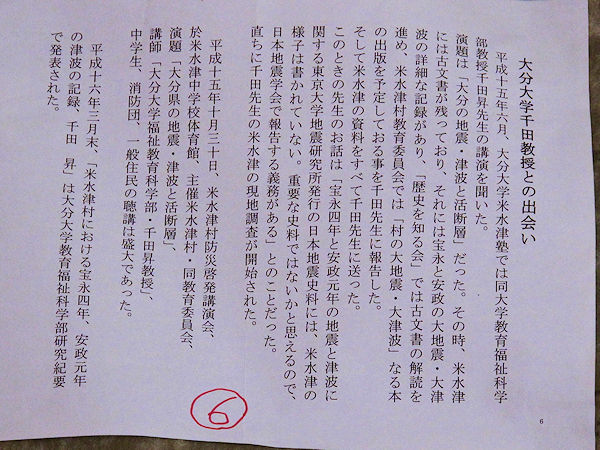 大分大学千田教授との出会い
平成十五年六月、大分大学米水津塾では同大学教育福祉科学
部教授千田昇先生の講演を聞いた。
演題は「大分の地震・津波と活断層」だった。その時、米水津
には古文書が残っており、それには宝永と安政の大地震・大津
波の詳細な記録があり、「歴史を知る会」では古文書の解読を
進め、米水津村教育委員会では「村の大地震・大津波」なる本
の出版を予定しておる事を千田先生に報告した。
そして米水津の資料をすべて千田先生に送った。
このときの先生のお話は「宝永四年と安政元年の地震と津波に
関する東京大学地震研究所発行の日本地震史料には、米水津の
様子は書かれていない。重要な史料ではないかと思えるので、
日本地震学会で報告する義務がある」とのことだった。
直ちに千田先生の米水津の現地調査が開始された。
平成十五年十月三十日、米水津村防災啓発講演会、
於米水津中学校体育館、主催米水津村・同教育委員会、
演題「大分県の地震・津波と活断層」、
講師「大分大学福祉教育科学部・千田昇教授」、
中学生、消防団、一般住民の聴講は盛大であった。
平成十六年三月末、「米水津村における宝永四年、安政元年
の津波の記録、千田 昇」は大分大学教育福祉科学部研究紀要
で発表された。
⑥
6